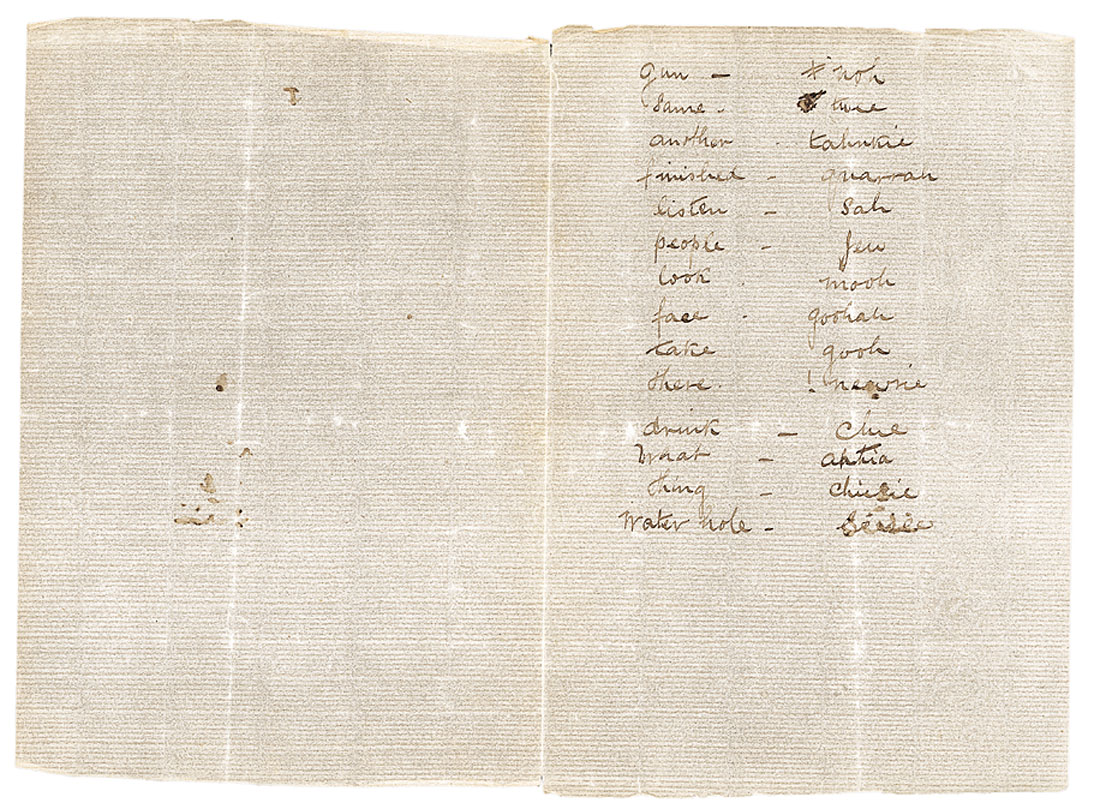 gun - ǂ noh
same . twee
another . tahnkie
finished - quarrah
listen - sah
people - Jew
look . mooh
face . goohah
take gooh
there . ! newrie
drink - Chie
What - ahtia
thing - chiesie
Water hole -